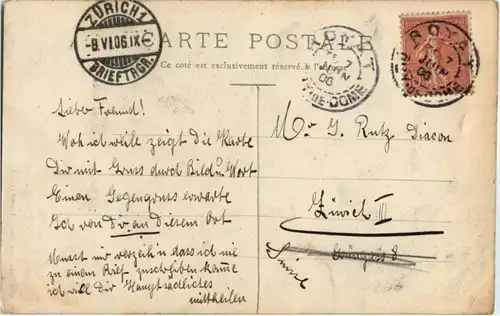 ZÜRICH 1
-8.VI.06.IX-
BRIEFTRGR.
CARTE POSTALE
Ce côté est exclusivement réservé à l'a
ROYAT
7
JUIN
06
PUY-DE-DOME
ROYAT
7
JUIN
06
DOME
Lieber Freund!
Wo ich weile zeigt die Karte
Dir mit Gruss durch Bild u. Wort
Einen Gegengruss erwarte
Ich von Dir an Diesem Ort
Musst mir verzeih'n dass ich nie
zu einem Brief zuschreiben kame
ich will Dir Hauptsächliches
mittheilen
Mr G. Rutz Diacon
Zürich III
8
Suisse